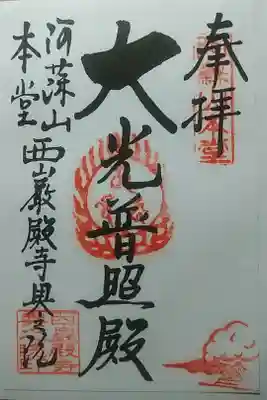 奉拝
大光普照殿
阿蘇山
本堂 西巌殿寺奥之院